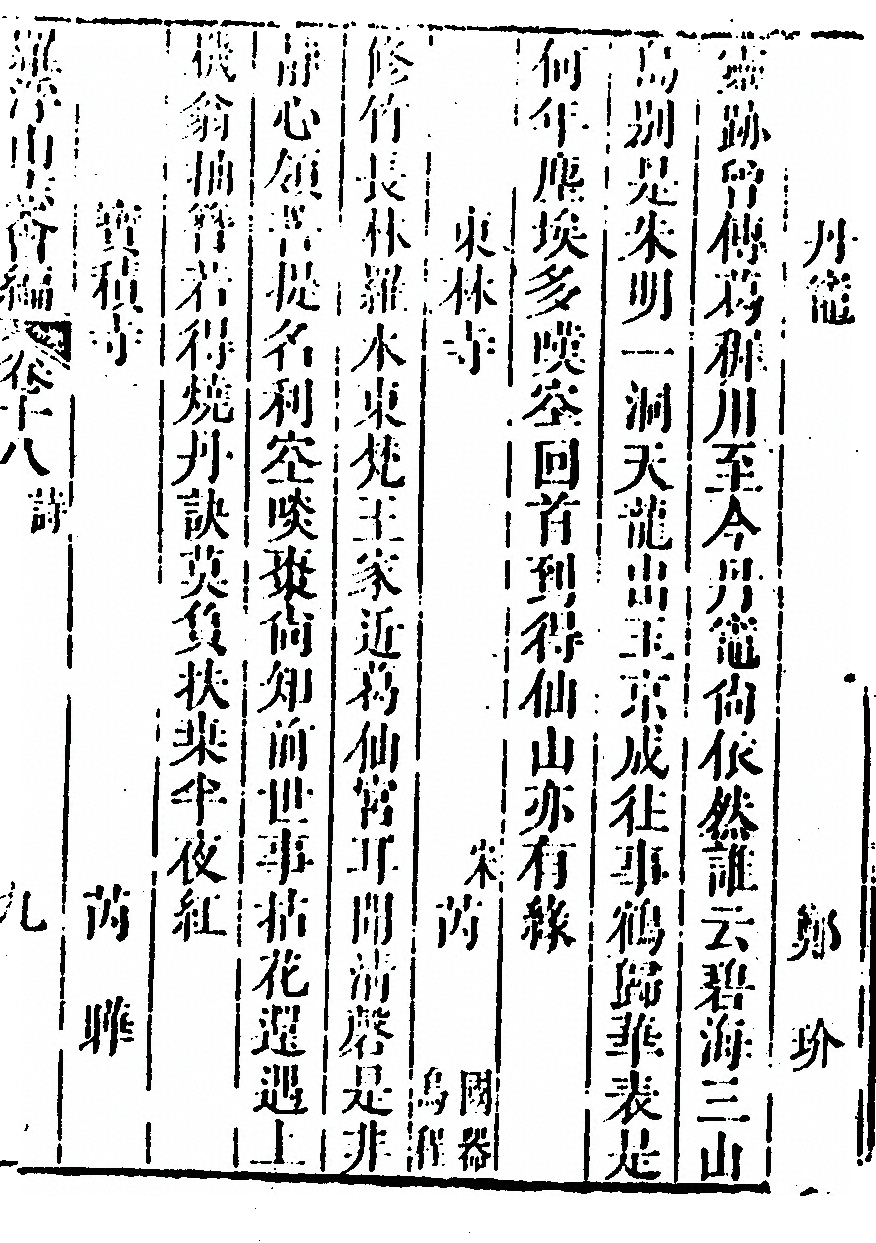 丹竈 鄭玠
靈跡曾傳葛稚川至今丹竈尚依然誰云碧海三山
島別是朱明一洞天龍出玉京成往事鶴歸華表是
何年塵埃多嘆空回首到得仙山亦有緣
東林寺 宋芮 國器烏程
修竹長林羅水東梵王家近葛仙宮耳聞清磬是非
靜心領菩提名利空啖棗尚知前世事拈花還遇上
機翁抽簪若得燒丹訣莫負扶桑半夜紅
寶積寺 芮
羅浮山志會編 卷十八 詩 九